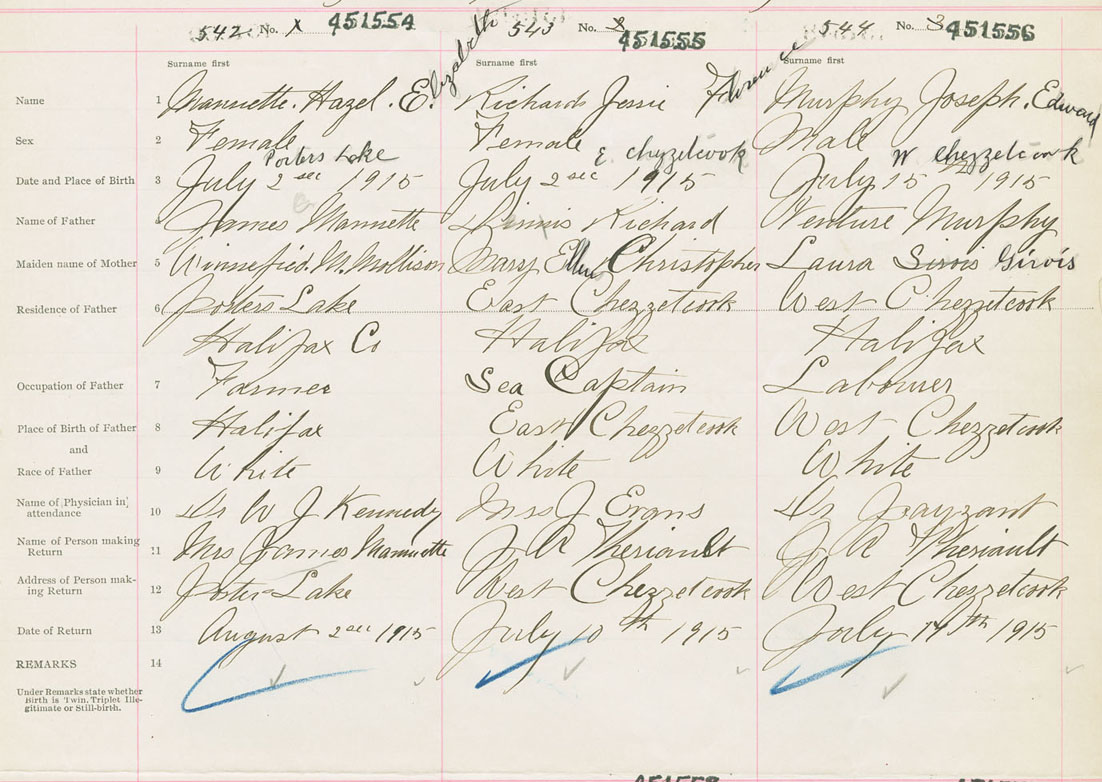 542 No. X 451554 543 No. 2 451555 544 No. 3 451556
Surname first Surname first Surname first
Name 1 Mannette. Hazel. E. Elizabeth Richards Jessie Florence Murphy Joseph. Edward
Sex 2 Female Female Male
Porters Lake E Chezzetcook W Chezzetcook
Date and Place of Birth 3 July 2 sec 1915 July 2 sec 1915 July 15 1915
Name of Father 4 James Mannette Dennis Richard Venture Murphy
Maiden name of Mother 5 Winnefied. M. Mollison Mary Ellen Christopher Laura Sirois Girvis
Residence of Father 6 Porters Lake East Chezzetcook West Chezzetcook
Halifax Co Halifax Halifax
Occupation of Father 7 Farmer Sea Captain Labourer
Place of Birth of Father 8 Halifax East Chezzetcook West Chezzetcook
and
Race of Father 9 White White White
Name of Physician in
attendance 10 Dr W J Kennedy Mrs J Evans Dr
Name of Person making
Return 11 Mrs James Mannette J A Theriault J A Theriault
Address of Person mak-
ing Return 12 Porter Lake West Chezzetcook West Chezzetcook
Date of Return 13 August 2 sec 1915 July 10th 1915 July 19th 1915
REMARKS 14
Under Remarks state whether
Birth is Twin, Triplet Ille-
gitimate or Still-birth.